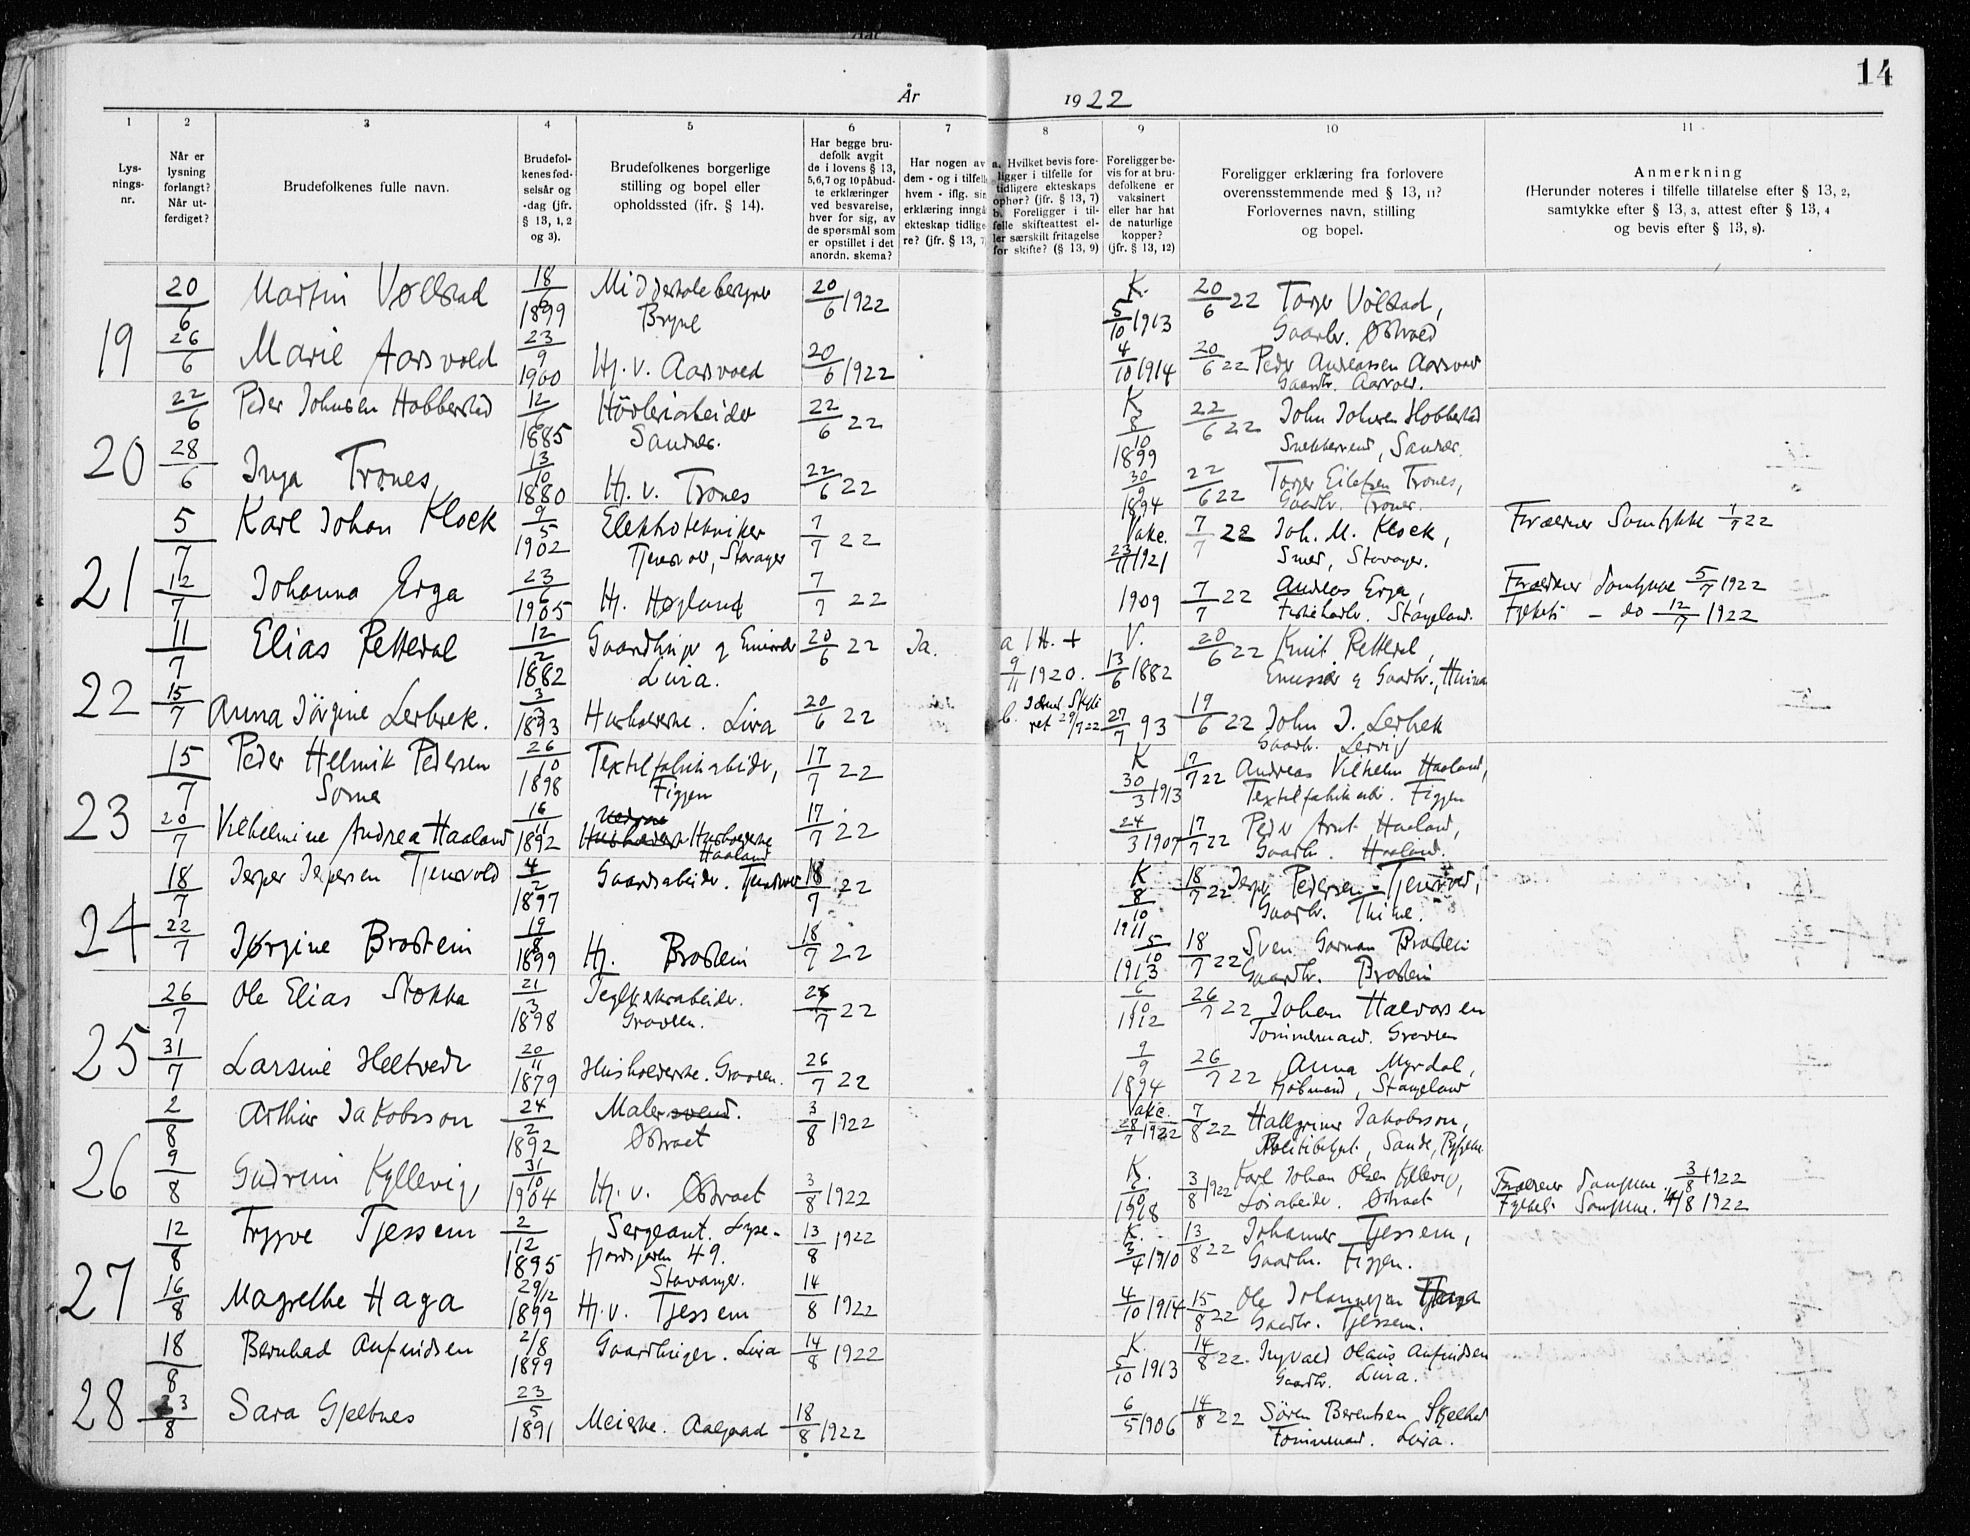 14
År 1922
1 2 3 4 5 6 7 8 9 10 11
Lys-
nings-
nr.
Når er
lysning
forlangt?
Når ut-
ferdiget?
Brudefolkenes fulle navn.
Brudefol-
kenes fød-
selsår og
-dag (jfr.
§ 13, 1, 2
og 3).
Brudefolkenes borgerlige
stilling og bopel eller
opholdssted (jfr. § 14).
Har begge bru-
defolk avgit
de i lovens § 13,
5,6,7 og 10 påbud-
te erklæringer
ved besvarelse,
hver for sig, av
de spørsmål som
er opstillet i det
anordn. skema?
Har nogen av
dem - og i tilfelle
hvem - iflg. sin
erklæring inngå
ekteskap tidlige
re? (jfr. § 13, 7)
a. Hvilket bevis fore-
ligger i tilfelle for
tidligere ekteskaps
ophør? (jfr. § 13, 7)
b. Foreligger i til-
felle skifteattest el-
ler særskilt fritagelse
for skifte? (§ 13, 9)
Foreligger be-
vis for at bru-
defolkene er
vaksinert
eller har hat
de naturlige
kopper?
(jfr. § 13, 12)
Foreligger erklæring fra forlovere
overensstemmende med § 13, 11?
Forlovernes navn, stilling
og bopel.
Anmerkning
(Herunder noteres i tilfelle tillatelse efter § 13, 2,
samtykke efter § 13, 3, attest efter § 13, 4
og bevis efter § 13, 8).
19
20/6 Martin Vølstad 18/6 1899
Bryne 20/6 1922 K. 5/10 1913 20/6 22 Torger Vølstad,
Gaardbr.
26/6 Marie Aarsvold 23/9 1900 Hj. v. Aarsvold 20/6 1922 4/10 1914 20/6 22 Peder Andreassen Aarsvold
Gaardbr. Aarsvold.
20
22/6 Peder Johnsen Hobberstad 12/6 1885 Høvleriarbeider
Sandnes. 22/6 22 K. 8/10 1899 22/6 22 John Johnsen Hobberstad
Sandnes.
28/6 Inga Trones 13/10 1880 Hj. v. Trones 22/6 22 30/9 1894 22/6 22 Torger Eilefsen Trones,
Gaardbr. Trones.
21
5/7 Karl Johan Klock 9/5 1902 Elektrotekniker
Tjensvold, Stavanger 7/7 22 Vakc. 23/11 1921 7/7 22 Joh. M. Klock,
Smed, Stavanger. Forældres Samtykke 7/7 22
12/7 Johanna Erga 23/6 1905 Hj. Høyland 7/7 22 1909 7/7 22 Andreas Erga,
Stangeland. Forældres Samtykke 5/7 1922
Fylkets – do 12/7 1922
22
11/7 Elias Rettedal 12/2 1882 Gaardbruger og Emissær
Lura. 20/6 22 Ja. a 1 H. + 9/11 1920. V. 13/6 1882 20/6 22 Knut Rettedal,
Emissær & Gaardbr.,
15/7 Anna Jörgine Lerbrek. 3/3 1893 Husholderske. Lura 20/6 22 b. 27/7 93 19/6 22 John J. Lerbrek
Gaardbr.
23
15/7 Peder Helmik Pedersen
Soma 26/10 1898 Textilfabrikarbeider,
Figgen 17/7 22 K 30/3 1913 7/7 22 Andreas Vilhelm Haaland,
Textilfabrikarb. Figgen
20/7 Vilhelmine Andrea Haaland 16/11 1892 Husholderske
Haaland 17/7 22 24/3 1907 17/7 22 Peder Arnt Haaland,
Gaardbr. Haaland.
24
18/7 Jesper Jespersen Tjensvold 4/2 1897 Gaardsarbeider. Tjensvold 18/7 22 K 8/10 1911 18/7 22 Jesper Pedersen Tjensvold,
Gaardbr. Thime.
22/7 Jørgine Brostein 19/8 1899 Hj. Brostein 18/7 22 5/10 1913 18/7 22 Sven Brostein
Gaardbr. Brostein
25
26/7 Ole Elias Stokka 21/3 1898 Teglverksarbeider.
Graveren. 26/7 22 6/10 1912 26/7 22 Johan Halvorsen
Tømmermand. Graveren
31/7 Larsine Heltvedt 20/11 1879 Husholderske. Graveren. 26/7 22 9/9 1894 26/7 22 Anna Myrdal,
Kjøbmand, Stangeland
26
2/8 Arthur Jakobsson 24/2 1892 Malersvend.
Østraat 3/8 1922 Vakc. 28/7 1922 7/8 22 Hallgrimur Jakobsson,
Politibetjent, Sande,
9/8 Gudrun Kyllevig 31/10 1904 Hj. v. Østraat 3/8 1922 K. 6/10 1918 3/8 1922 Karl Johan Olsen Kyllevig,
Østraat Forældres Samtykke. 3/8 1922
Fylkets Samtykke. 14/8 1922
27
12/8 Trygve Tjessem 2/12 1895 Sergeant. Lyse-
fjordsgaten 49.
Stavanger. 13/8 1922 K. 3/4 1910 13/8 22 Johannes Tjessem,
Gaardbr. Figgen.
16/8 Magrethe Haga 29/12 1899 Hj. v. Tjessem 14/8 1922 4/10 1914 15/8 22 Ole Johannesen Haga
Gaardbr. Tjessem.
28
18/8 Bernhad Anfindsen 2/8 1899 Gaardbruger. Lura 14/8 1922 K. 5/10 1913 14/8 22. Ingvald Olaus Anfindsen
Gaardbr. Lura.
23/8 Sara Gjeltnes 23/5 1891 Meierske. Aalgaard 18/8 1922 6/5 1906 14/8 22 Søren Berentsen
Tømmermand. Lura.